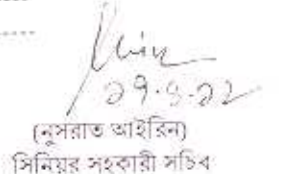 ২৭.৪.২২
(নুসরাত আইরিন)
সিনিয়র সহকারী সচিব